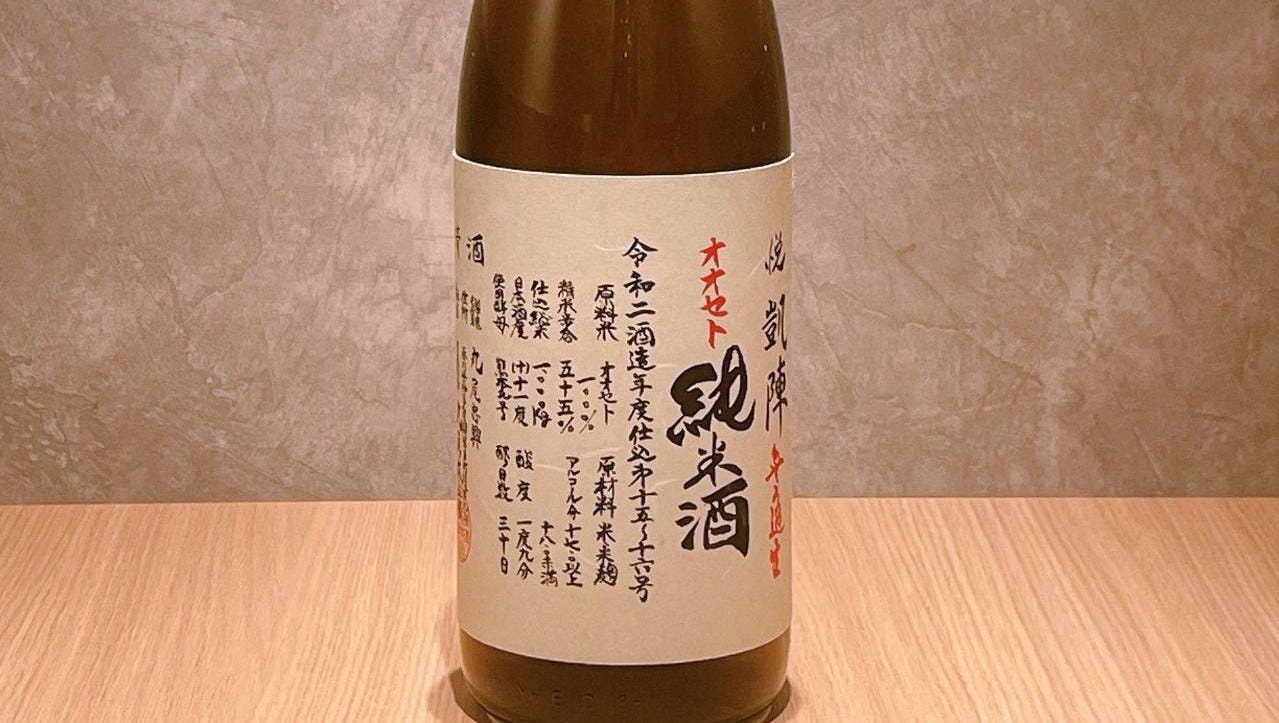 悦凱陣
オオセト
純米酒
令和二酒造年度仕込第十五〜十六号
原料米 オオセト 一〇〇%
原材料 米 米麹
精米歩合 五十五%
アルコール分 十七.〇以上 十八.〇未満
仕込総米
日本酒度 (+)十一度
酸度 一度九分
使用酵母 熊本九号
醪日数 三十日
丸尾忠興